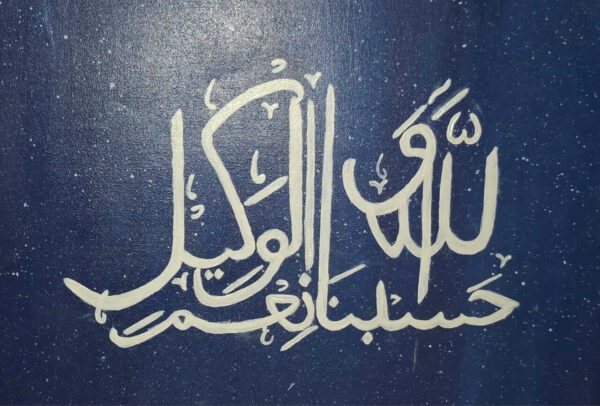 حسبنا الله و
نعم الوكيل